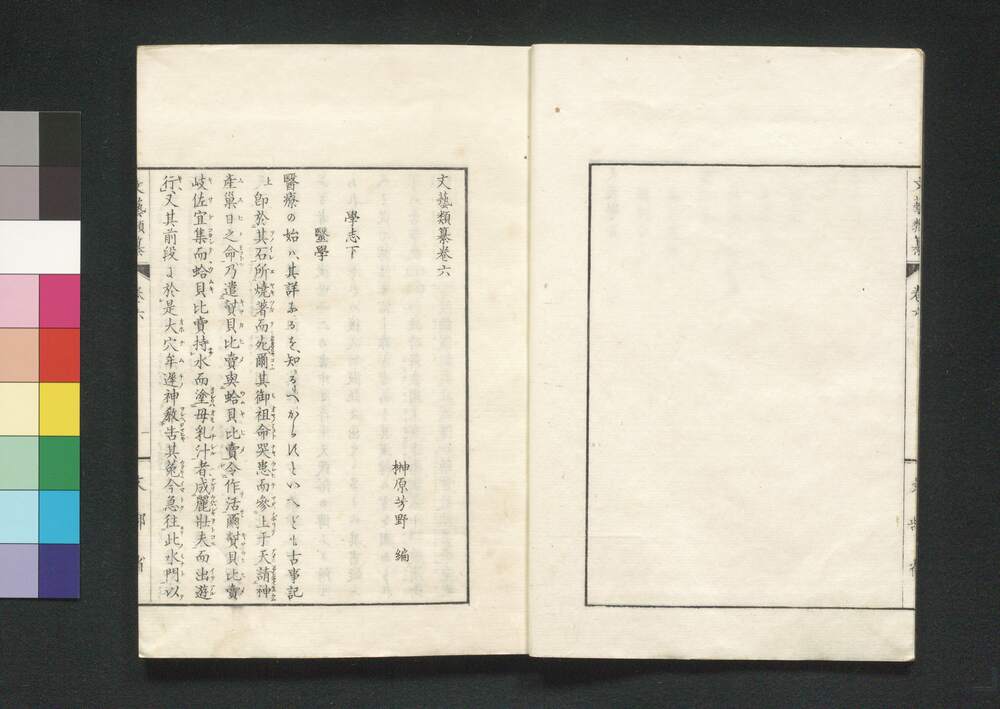 文藝類纂
卷六
文部省
文藝類纂卷六
榊原芳野 編
學志下
醫學
醫療の始ハ其詳なるを知るへからすといへども古事記
上 卽於其石所燒著而死爾其御祖命哭患而參上于天請神
產巢日之命乃遣𧏛貝比賣與蛤貝比賣令作活爾𧏛貝比賣
岐佐宜集而蛤貝比賣持水而塗母乳汁者成麗壯夫而出遊
行又其前段に於是大穴牟遲神敎告其菟今急往此水門以
文藝類纂
卷六
一
文部省